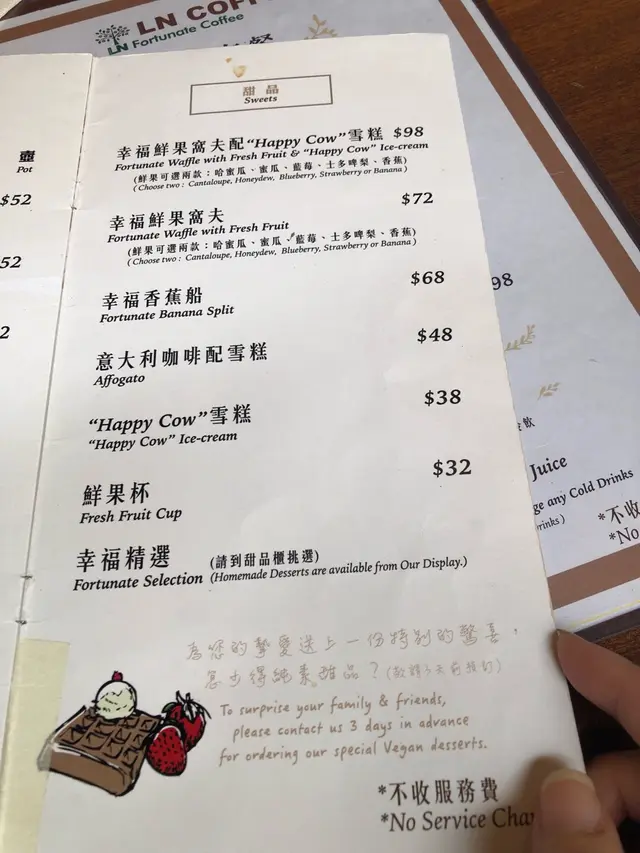 LN COFF
LN Fortunate Coffee
甜品
Sweets
壺
Pot
$52
52
2
幸福鮮果窩夫配“Happy Cow”雪糕 $98
Fortunate Waffle with Fresh Fruit & “Happy Cow” Ice-cream
(鮮果可選兩款：哈蜜瓜、蜜瓜、藍莓、士多啤梨、香蕉)
( Choose two : Cantaloupe, Honeydew, Blueberry, Strawberry or Banana )
幸福鮮果窩夫 $72
Fortunate Waffle with Fresh Fruit
(鮮果可選兩款：哈蜜瓜、蜜瓜、藍莓、士多啤梨、香蕉)
( Choose two : Cantaloupe, Honeydew, Blueberry, Strawberry or Banana )
幸福香蕉船 $68
Fortunate Banana Split
意大利咖啡配雪糕 $48
Affogato
“Happy Cow”雪糕 $38
“Happy Cow” Ice-cream
鮮果杯 $32
Fresh Fruit Cup
幸福精選 (請到甜品櫃挑選)
Fortunate Selection (Homemade Desserts are available from Our Display.)
為您的摯愛送上一份特別的驚喜，
怎少得純素甜品？(敬請3天前預訂)
To surprise your family & friends,
please contact us 3 days in advance
for ordering our special Vegan desserts.
*不收服務費
*No Service Cha
98
飲
Juice
ge any Cold Drinks
rinks )
*不收
*No